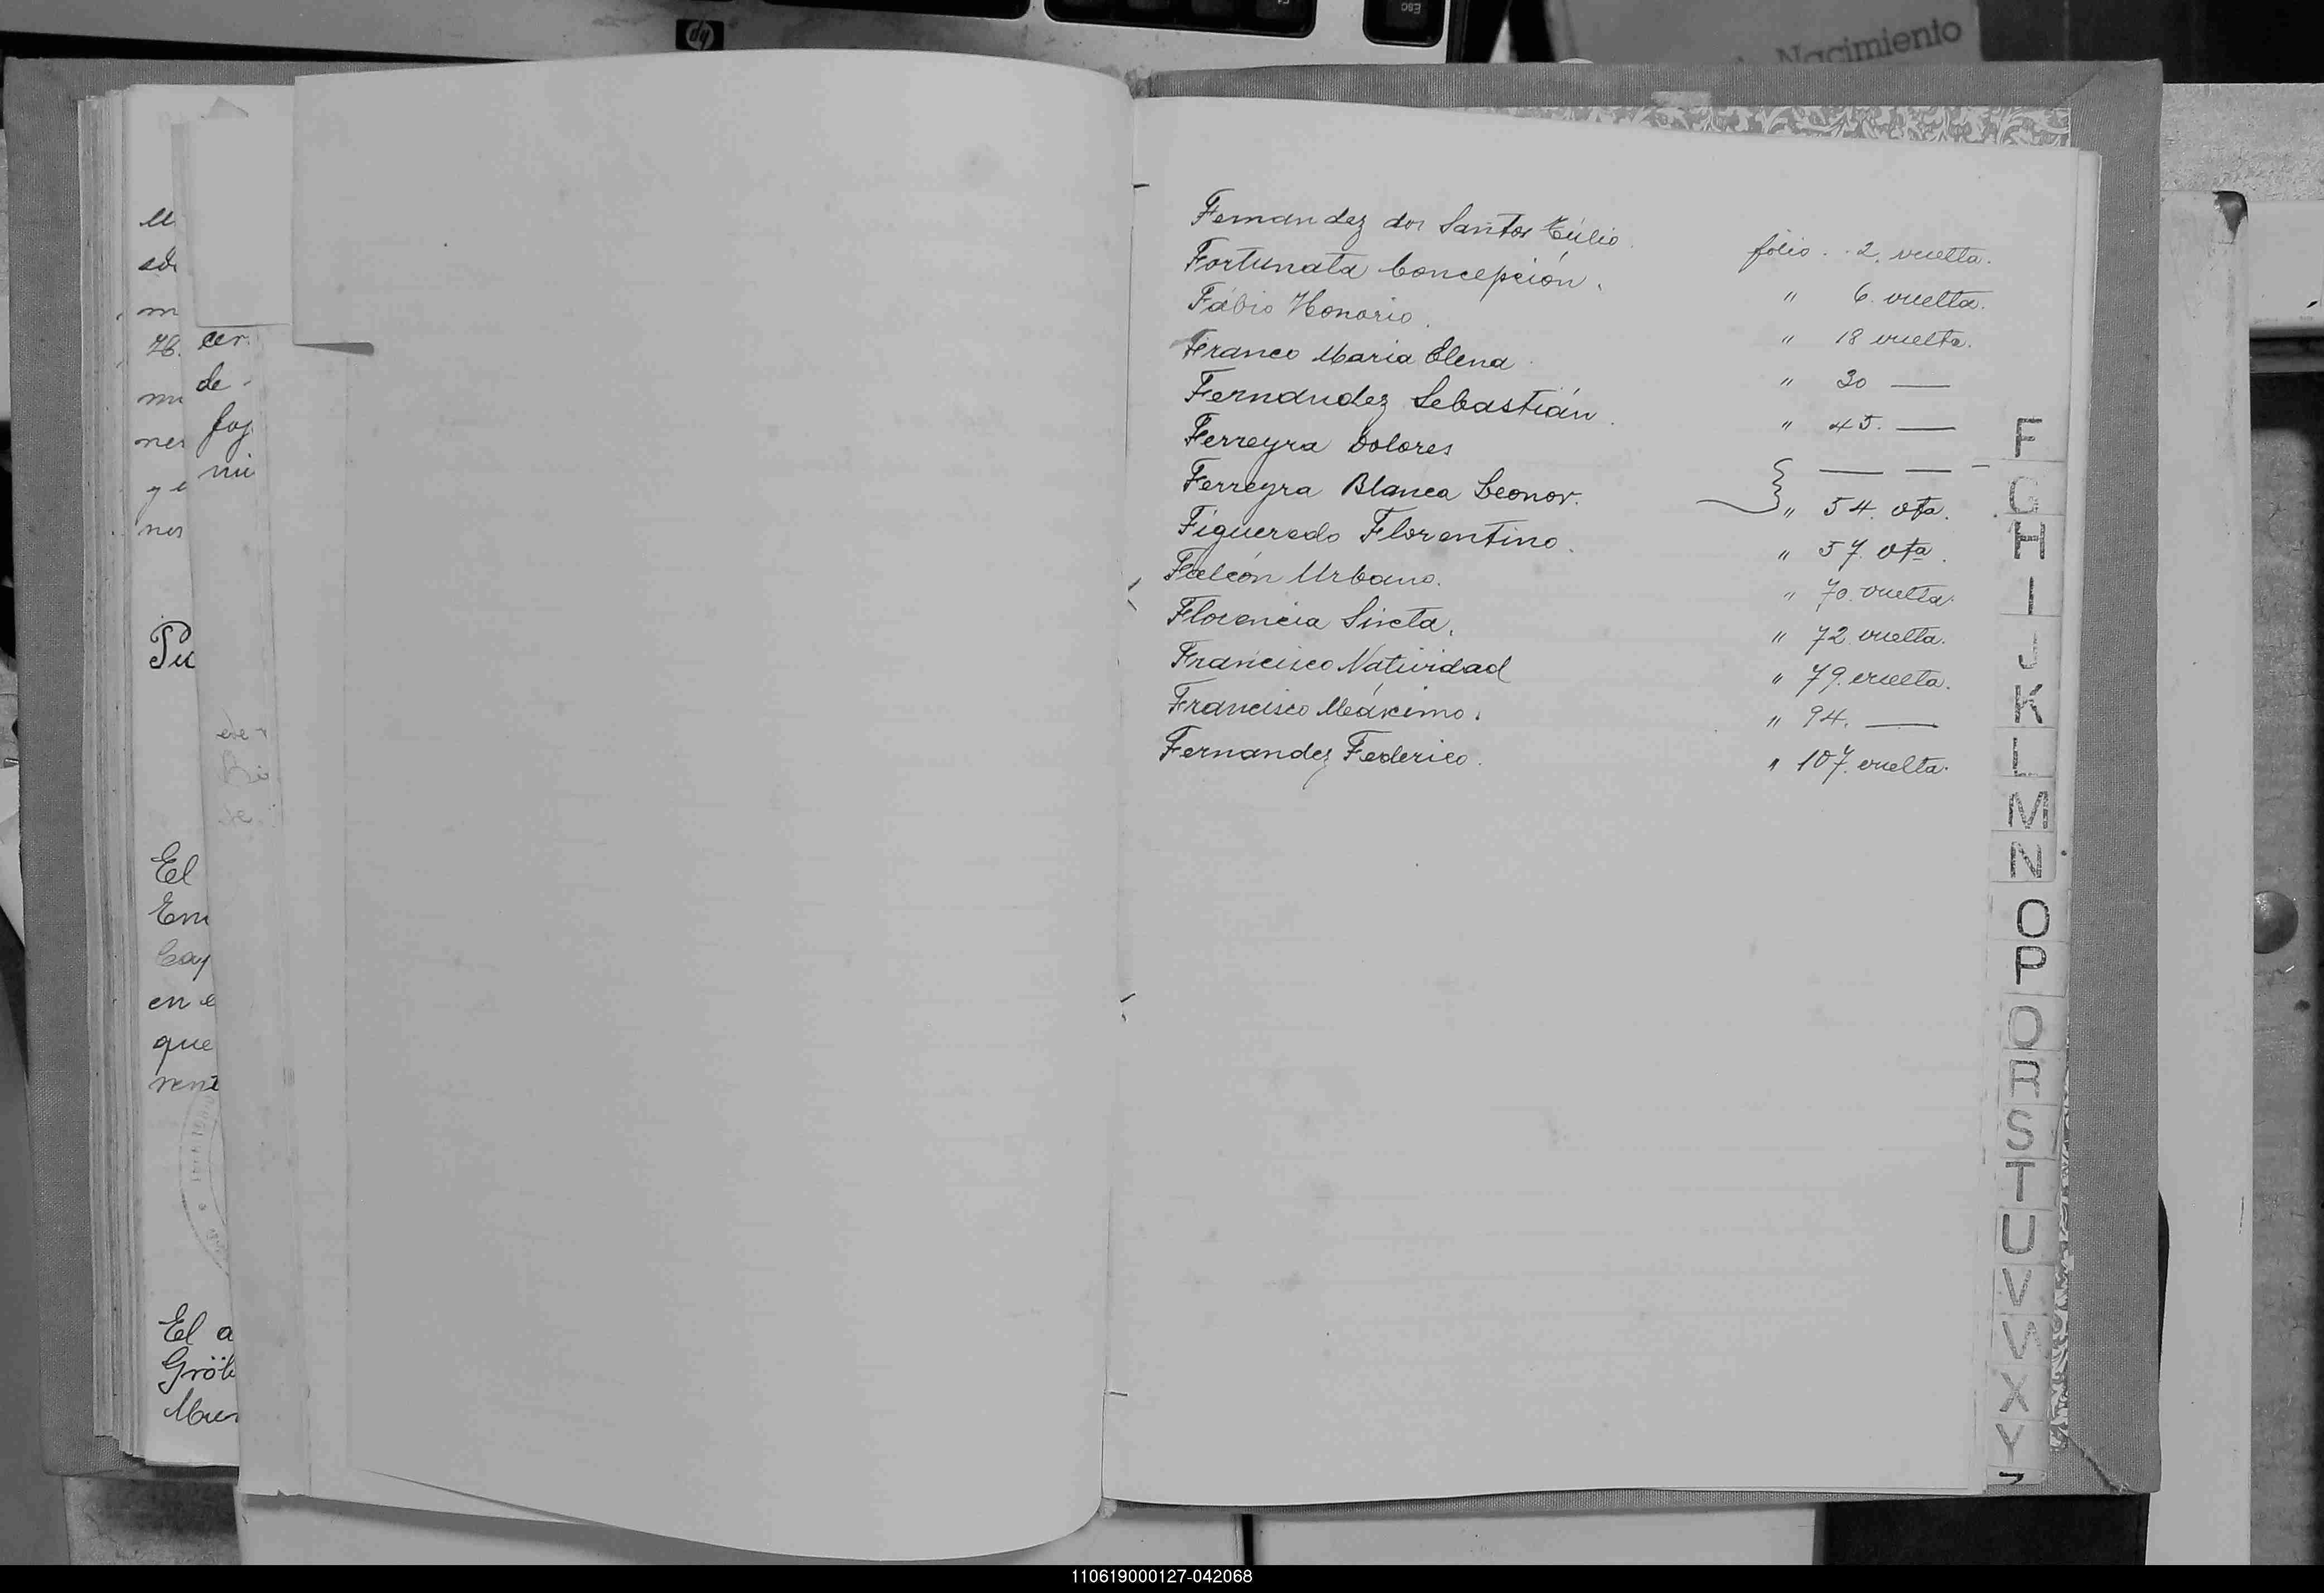 ESC
hp
Nacimiento
Fernandez dos Santos Túlio. folio . . 2. vuelta.
Fortunata Concepción. " 6. vuelta.
Fábio Honorio. " 18 vuelta.
Franco Maria Elena " 30 —
Fernández Sebastián. " 45. —
Ferreyra Dolores — — -
Ferreyra Blanca Leonor. " 54. vta.
Figueredo Florentino. " 57. vta.
Falcón Urbano. " 70. vuelta.
Florencia Sixta. " 72. vuelta.
Francisco Natividad " 79. vuelta.
Francisco Máximo. " 94. —
Fernandez Federico. " 107. vuelta.
F
G
H
I
J
K
L
M
N
O
P
Q
R
S
T
U
V
W
X
Y
Z
de
mi
Pu
El
Em
Cay
en e
que
El a
110619000127-042068